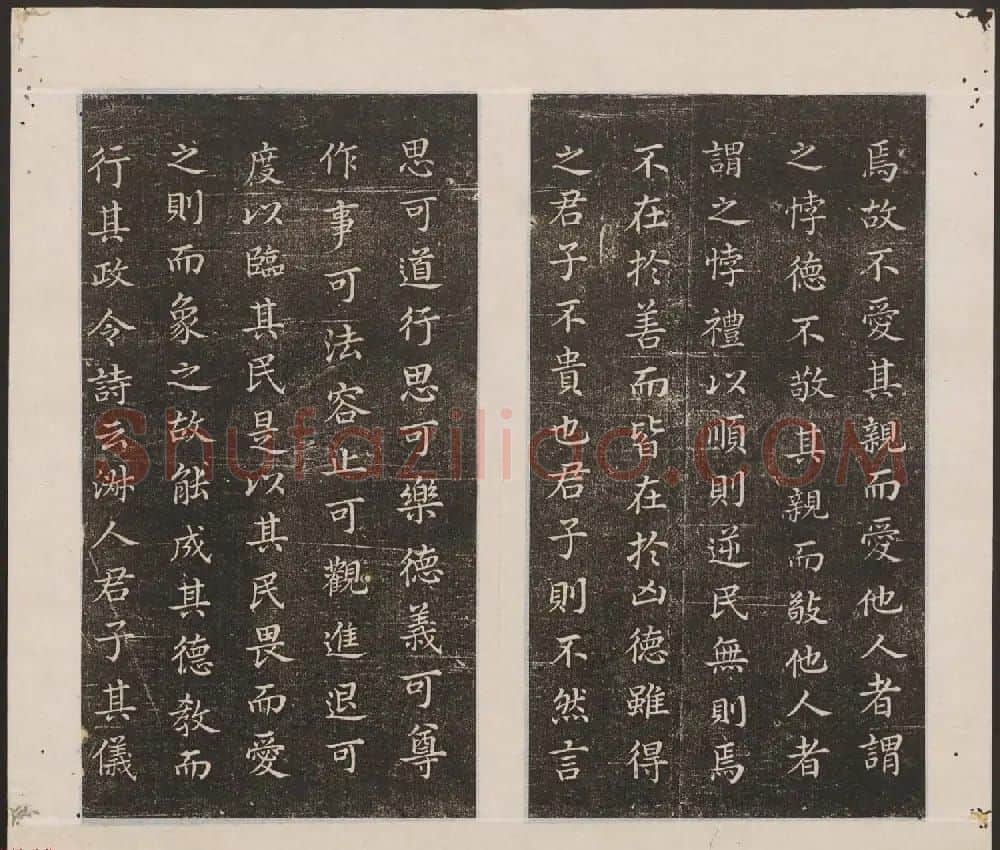 焉故不愛其親而愛他人者謂
之悖德不敬其親而敬他人者
謂之悖禮以順則逆民無則焉
不在於善而皆在於凶德雖得
之君子不貴也君子則不然言
思可道行思可樂德義可尊
作事可法容止可觀進退可
度以臨其民是以其民畏而愛
之則而象之故能成其德教而
行其政令詩云淑人君子其儀
Shufaziliao.COM